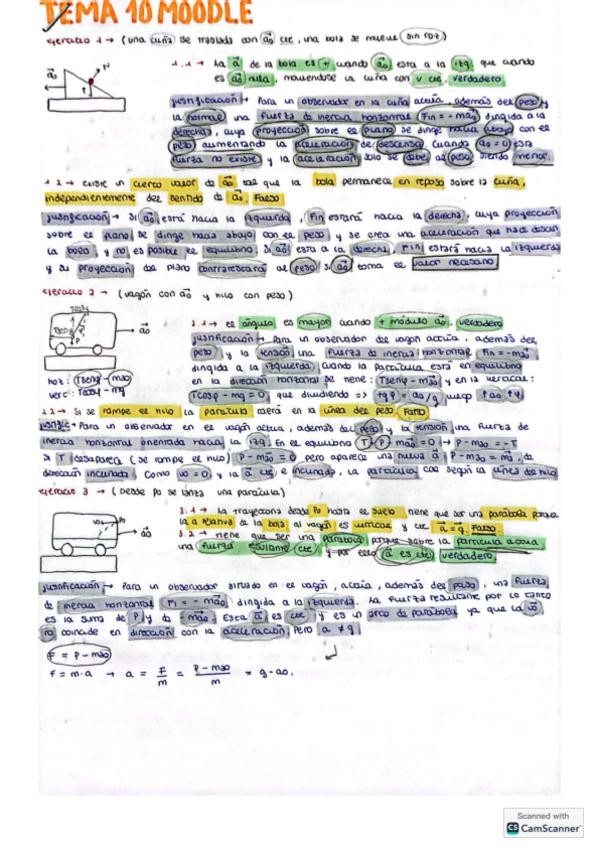 TEMA 10 MOODLE
ejercicio 1 → (una cuña se traslada con a⃗o cte, una bola se mueve sin roz)
1.1 → La a⃗ de la bola es + cuando a⃗o está a la izq. que cuando
es a⃗o nula, moviéndose la cuña con v cte. verdadero
justificación → Para un observador en la cuña actúa, además del peso y
la normal una fuerza de inercia horizontal (Fin = -mao) dirigida a la
derecha, cuya proyección sobre el plano se dirige hacia abajo con el
peso aumentando la aceleración de descenso. Cuando ao = 0 esta
fuerza no existe y la aceleración solo se debe al peso siendo menor.
1.2 → existe un cierto valor de a⃗o tal que la bola permanece en reposo sobre la cuña,
independientemente del sentido de a⃗o. Falso
justificación → Si a⃗o está hacia la izquierda, Fin estará hacia la derecha, cuya proyección
sobre el plano se dirige hacia abajo con el peso y se crea una aceleración que hace descender
la bola, y no es posible el equilibrio. Si a⃗o está a la derecha, Fin estará hacia la izquierda
y su proyección del plano contrarrestará al peso si a⃗o toma el valor necesario
ejercicio 2 → (vagón con a⃗o y hilo con peso)
2.1 → el ángulo es mayor cuando + módulo a⃗o. verdadero
justificación → Para un observador del vagón actúa, además del
peso y la tensión una fuerza de inercia horizontal Fin = -mao,
dirigida a la izquierda. Cuando la partícula está en equilibrio
en la dirección horizontal se tiene: Tsenφ - mao y en la vertical:
Tcosφ - mg = 0 que dividiendo => tgφ = ao/g luego ↑ao ↑φ
hor: Tsenφ - mao
ver: Tcosφ - mg
2.2 → Si se rompe el hilo la partícula caerá en la línea del peso. Falso
justific → Para un observador en el vagón actúa, además del peso y la tensión una fuerza de
inercia horizontal orientada hacia la izq. En el equilibrio T P mao = 0 → P - mao = -T
si T desaparece (se rompe el hilo) P - mao = 0 pero aparece una nueva a⃗ P - mao = ma, de
dirección inclinada. Como vo = 0 y la a⃗ cte e inclinada, la partícula cae según la línea del hilo
ejercicio 3 → (Desde Po se lanza una partícula)
3.1 → La trayectoria desde Po hasta el suelo tiene que ser una parábola porque
la a relativa de la bola al vagón es vertical y cte a⃗ = g. Falso.
3.2 → Tiene que ser una parábola porque sobre la partícula actúa
una fuerza resultante cte y por ello a⃗ es cte verdadero
justificación → Para un observador situado en el vagón, actúa, además del peso, una fuerza
de inercia horizontal Fi = -mao, dirigida a la izquierda. La fuerza resultante por lo tanto
es la suma de P y de -mao. Esta a⃗ es cte y es un arco de parábola ya que la vo
no coincide en dirección con la aceleración, pero a ≠ g
F = P - mao
F = m·a → a = F/m = P - mao/m = g - ao.
Scanned with
CS CamScanner